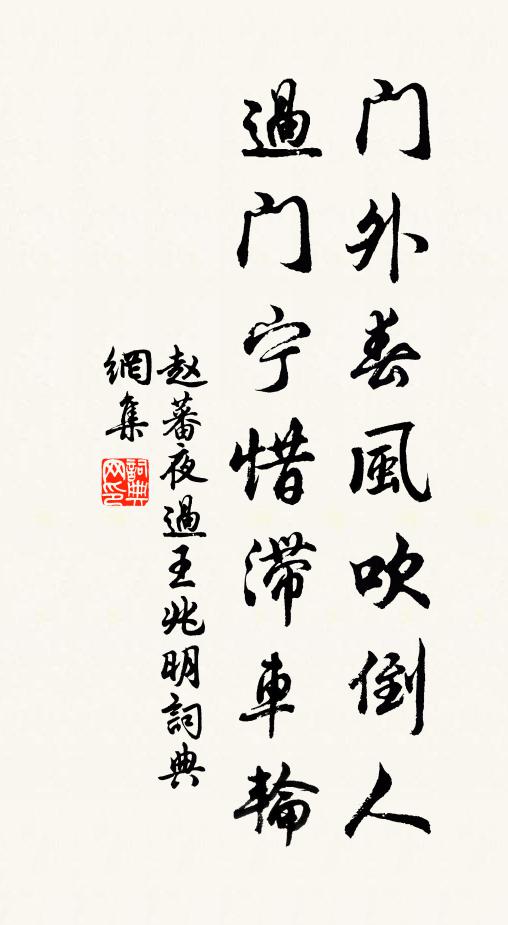 门外春風吹倒人
過门宁惜滞車輪
赵蕃夜過王兆明詞典
網集
詞典网印